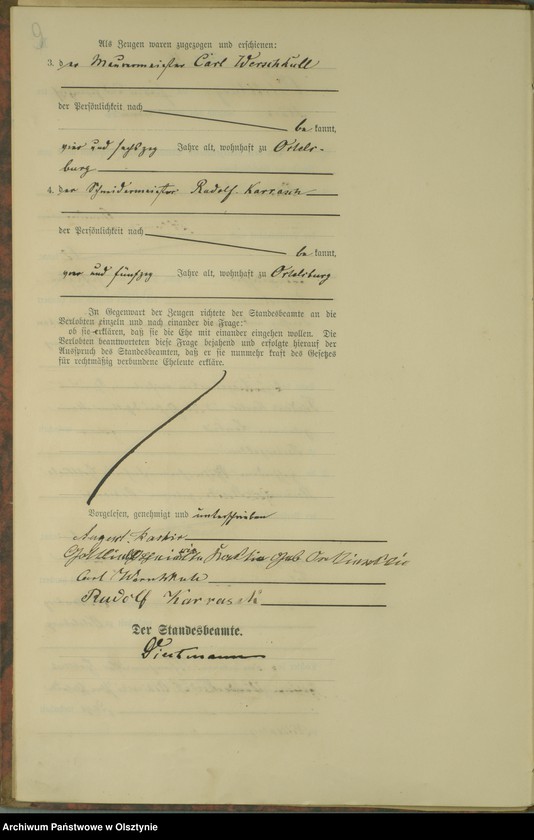 Als Zeugen waren zugezogen und erschienen:
3. der Maurermeister Carl Werschkull
der Persönlichkeit nach
be kannt,
vier und sechszig Jahre alt, wohnhaft zu Ortels-
burg
4. der Schneidermeister Rudolf Karrasch
der Persönlichkeit nach
be kannt,
und fünfzig Jahre alt, wohnhaft zu Ortelsburg
In Gegenwart der Zeugen richtete der Standesbeamte an die
Verlobten einzeln und nach einander die Frage:
ob sie erklären, daß sie die Ehe mit einander eingehen wollen. Die
Verlobten beantworteten diese Frage bejahend und erfolgte hierauf der
Ausspruch des Standesbeamten, daß er sie nunmehr kraft des Gesetzes
für rechtmäßig verbundene Eheleute erkläre.
Vorgelesen, genehmigt und unterschrieben
August
geb
Carl Werschkull
Rudolf Karrasch
Der Standesbeamte.
Archiwum Państwowe w Olsztynie